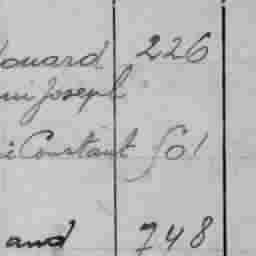 ouard 226
Joseph
Constant 501
and 748